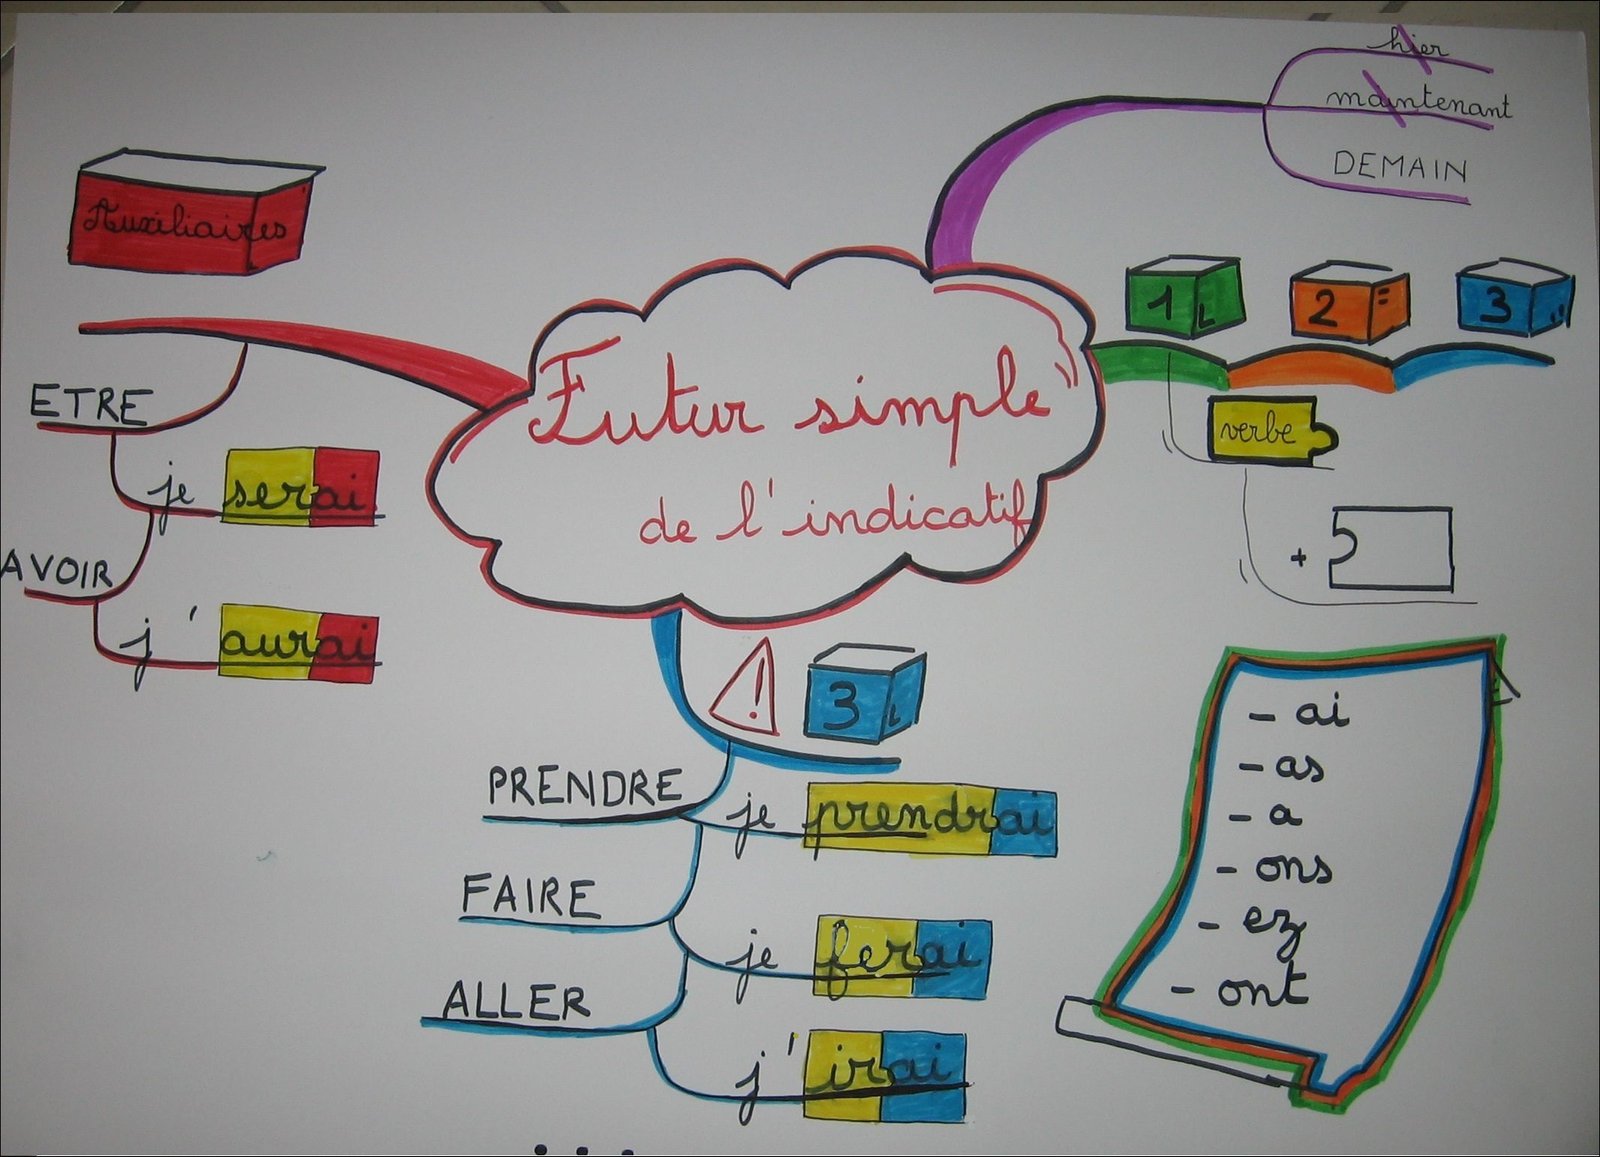 hier
maintenant
DEMAIN
Auxiliaires
ETRE
je serai
AVOIR
j'aurai
Futur simple
de l'indicatif
1
2
3
verbe
+
- ai
- as
- a
- ons
- ez
- ont
! 3
PRENDRE
je prendrai
FAIRE
je ferai
ALLER
j'irai
...